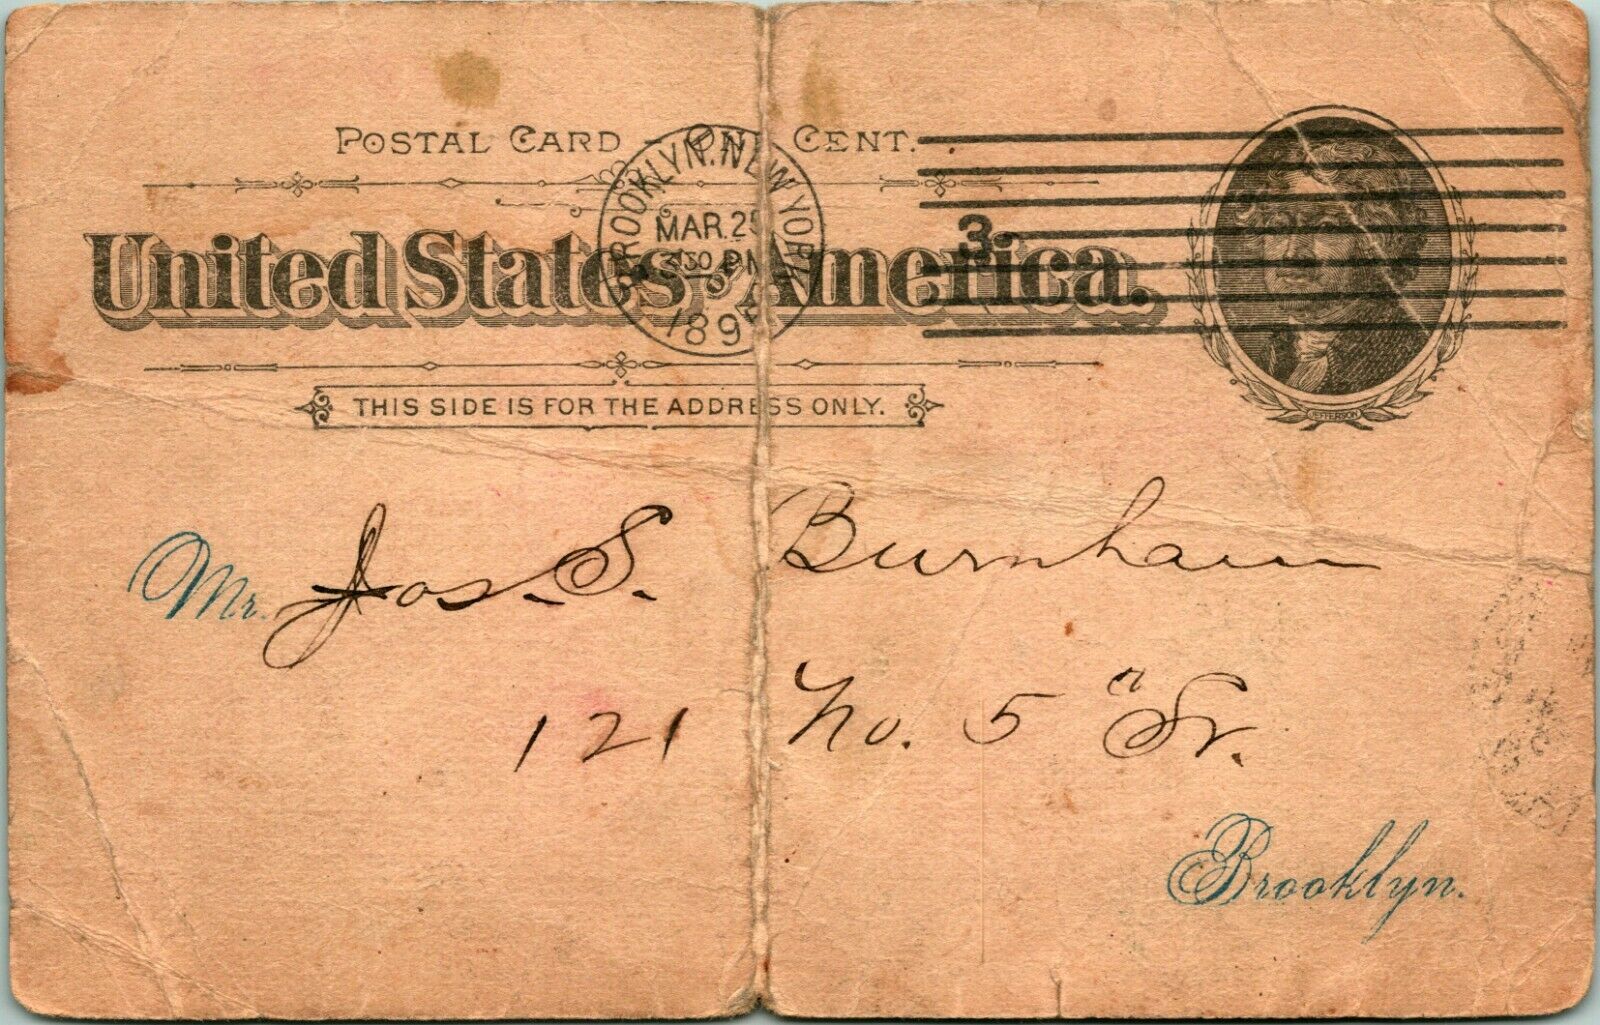 POSTAL CARD – ONE CENT.
BROOKLYN. NEW YORK
MAR. 25
430 PM
1895
3
United States of America.
JEFFERSON
THIS SIDE IS FOR THE ADDRESS ONLY.
Mr. Jos. S. Burnham
121 No. 5" St.
Brooklyn.